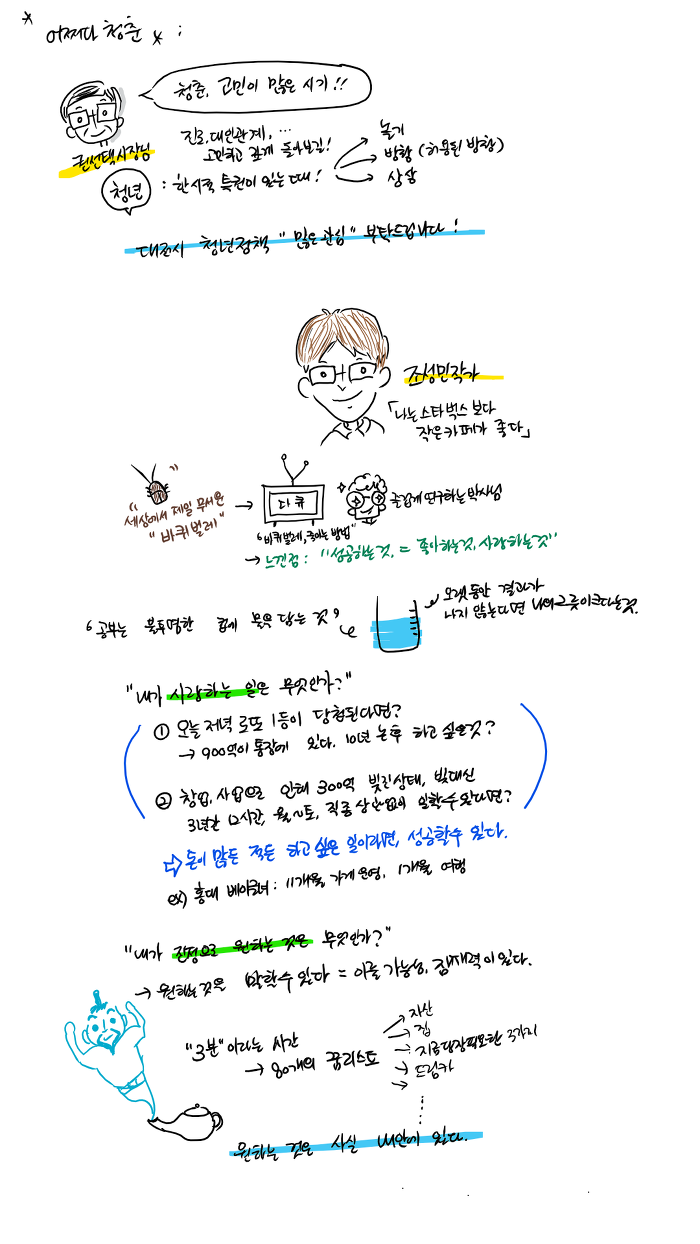 * 어쩌다 청춘 * ;
청춘, 고민이 많은 시기!!
권선택시장님
진로, 대인관계, ...
고민하고 깊게 돌아보길!
청년
: 한시적 특권이 있는 때!
놀기
방황 (허용된 방황)
상상
대전시 청년정책 "많은 관심" 부탁드립니다!
조성민작가
「나는 스타벅스 보다
작은카페가 좋다」
"세상에서 제일 무서운
"바퀴벌레"
→ 다큐
즐겁게 연구하는 박사님
"바퀴벌레, 죽이는 방법"
→ 느낀점 : "성공하는것, = 좋아하는것, 사랑하는것"
"공부는 불투명한 컵에 물을 담는 것"
오랫동안 결과가
나지 않는다면 나의 그릇이 크다는것.
"내가 사랑하는 일은 무엇인가?"
① 오늘 저녁 로또 1등이 당첨된다면?
→ 900억이 통장에 있다. 10년 논후 하고 싶은것?
② 창업, 사업으로 인해 300억 빚진상태, 빚대신
31년간 12시간, 월~토, 직종 상관없이 일할수있다면?
⇨ 돈이 많든 적든 하고싶은 일이라면, 성공할수 있다.
ex) 홍대 베이글녀 : 11개월 가게운영, 1개월 여행
"내가 진정으로 원하는 것은 무엇인가?"
→ 원하는것을 말할수 있다 = 이룰 가능성, 잠재력이 있다.
"3분"이라는 시간
→ 80개의 꿈리스트
→ 자산
→ 집
→ 지금당장필요한 3가지
→ 드림카
→
원하는 것은 사실 내안에 있다.